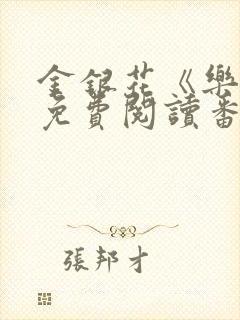 金銀花《樂
免費閱讀番
張邦才